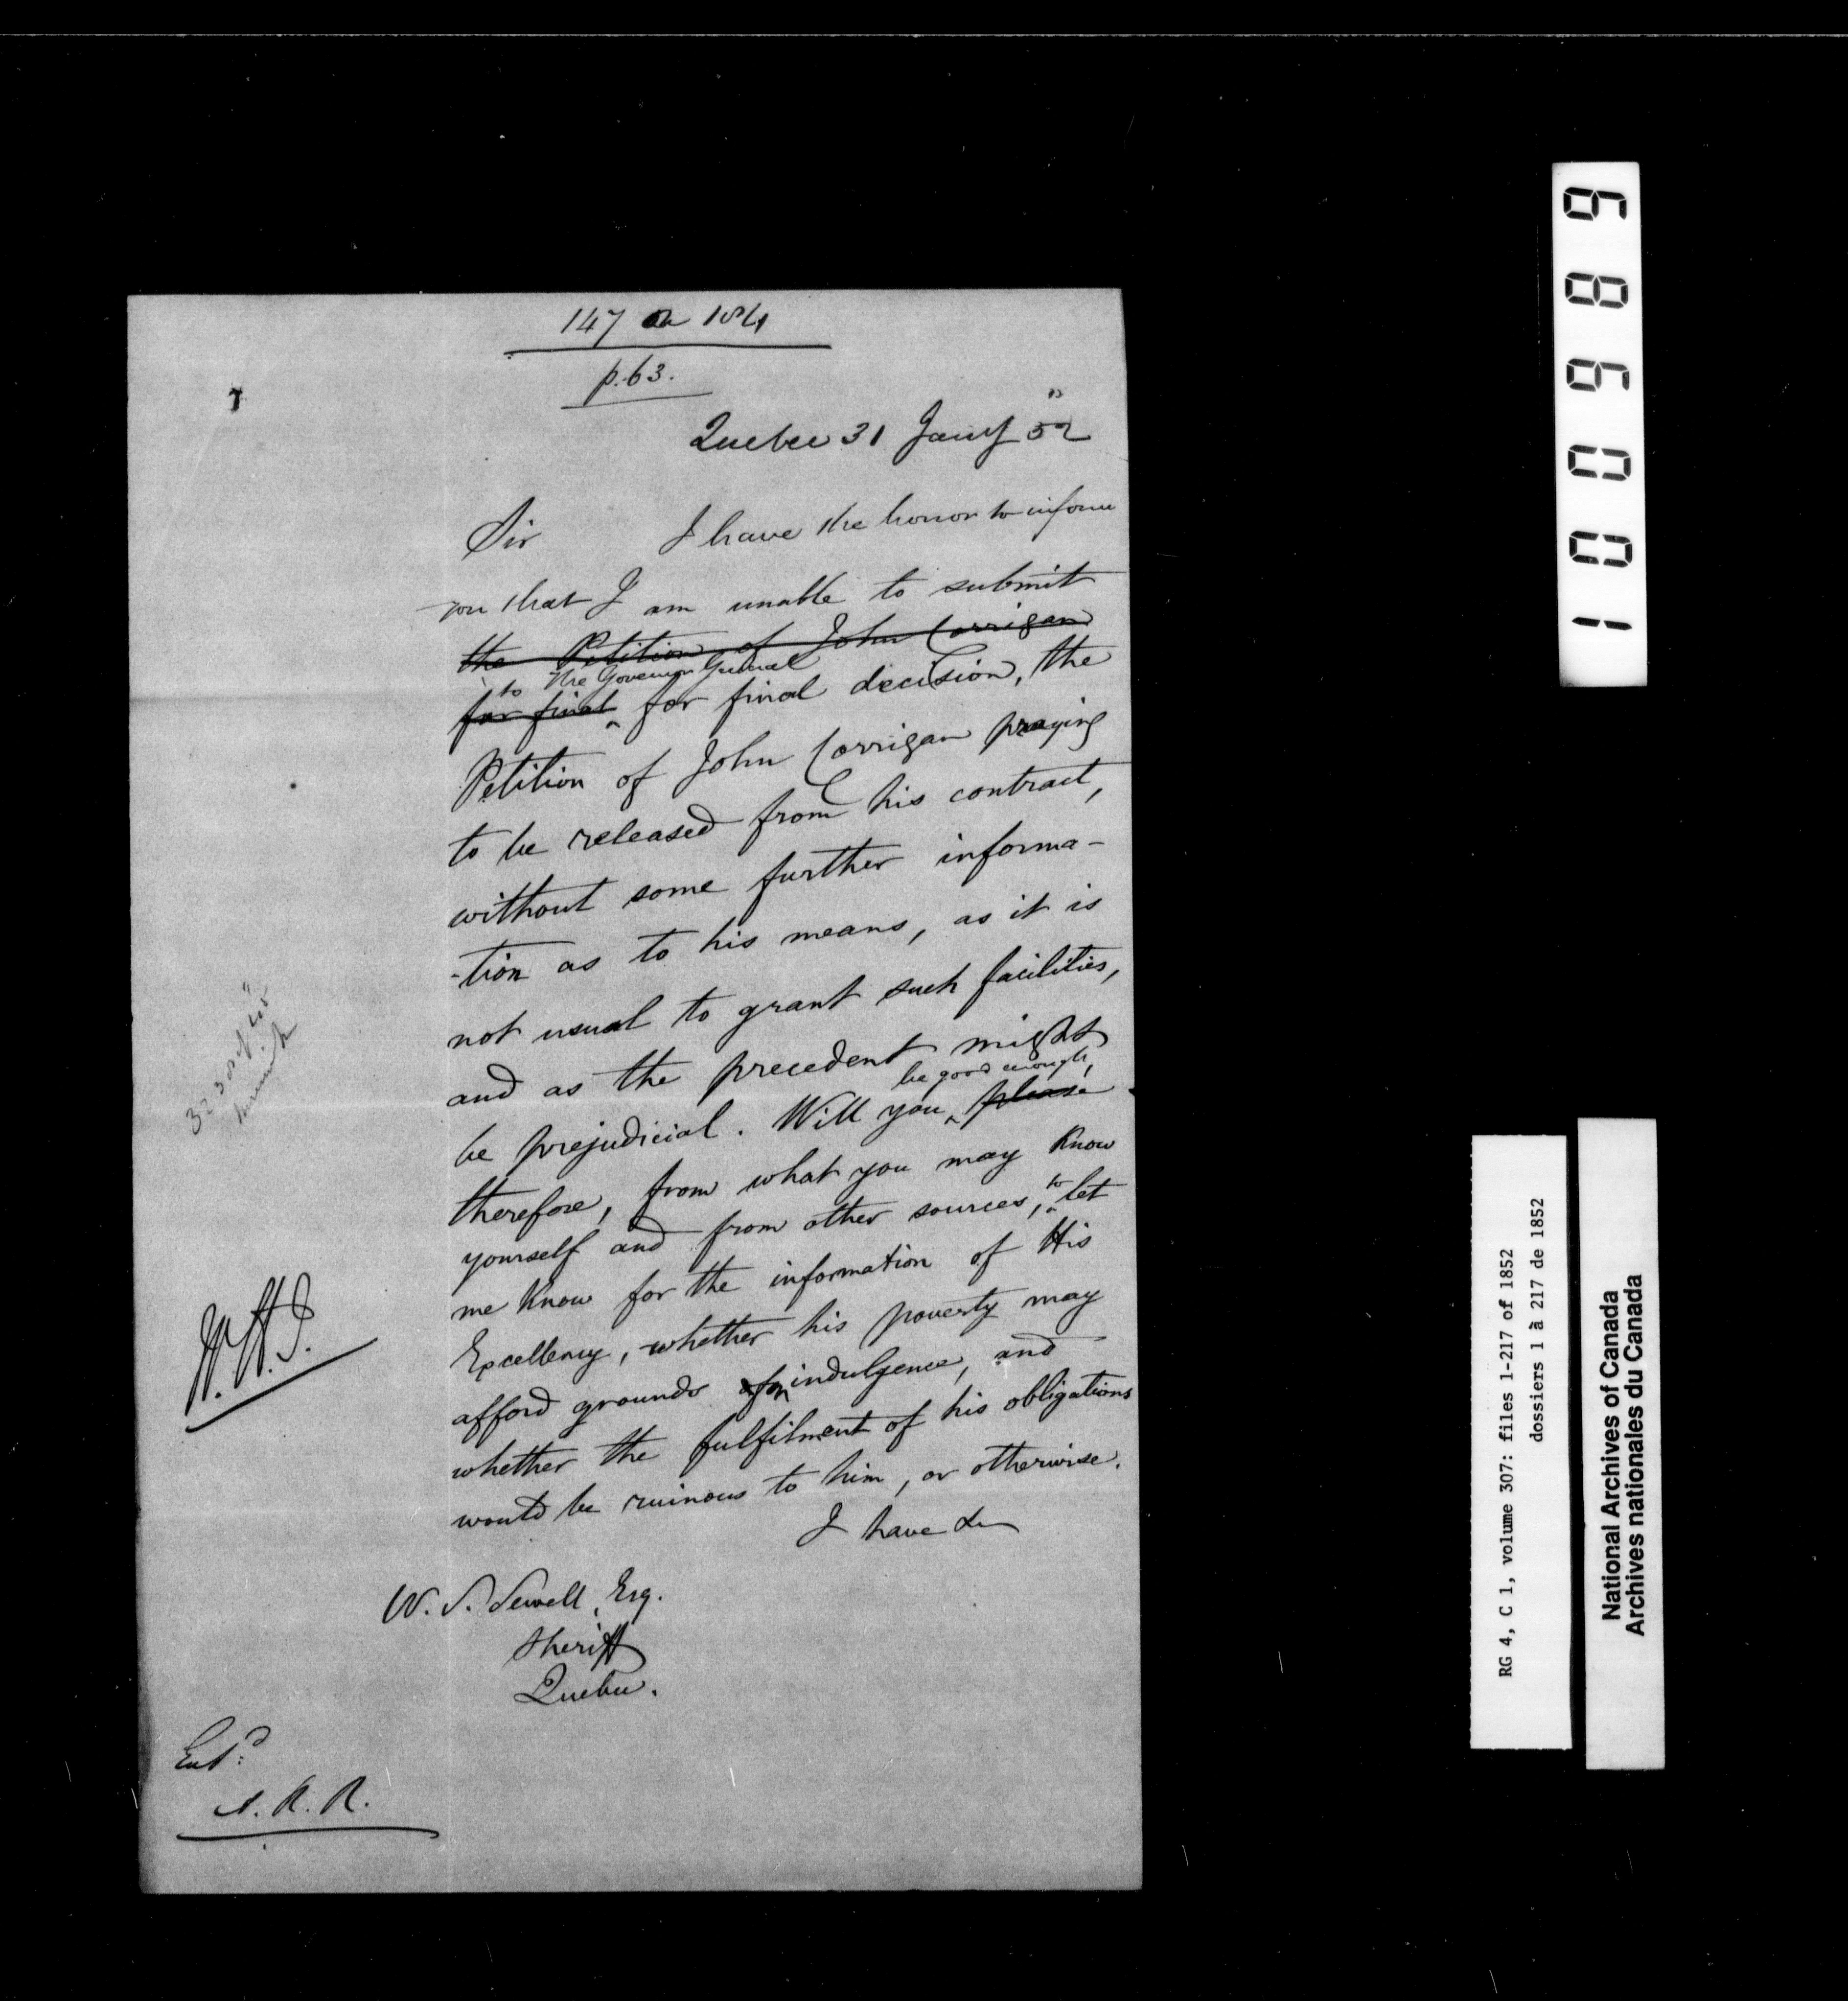 147 on 184
p. 63.
Quebec 31 Jany 52
Sir I have the honor to inform
you that I am unable to submit
the Petition of John Corrigan
to the Governor General
for final for final decision, the
Petition of John Corrigan praying
to be released from his contract,
without some further informa-
-tion as to his means, as it is
not usual to grant such facilities,
and as the precedent might
be good enough,
be prejudicial. Will you please
therefore, from what you may know
yourself and from other sources, to let
me know for the information of His
Excellency, whether his poverty may
afford grounds for indulgence, and
whether the fulfilment of his obligations
would be ruinous to him, or otherwise.
I have &c
W. S. Sewell, Esq.
Sheriff
Quebec.
Entd:
A. R. R.
100989
RG 4, C 1, volume 307: files 1-217 of 1852
dossiers 1 à 217 de 1852
National Archives of Canada
Archives nationales du Canada